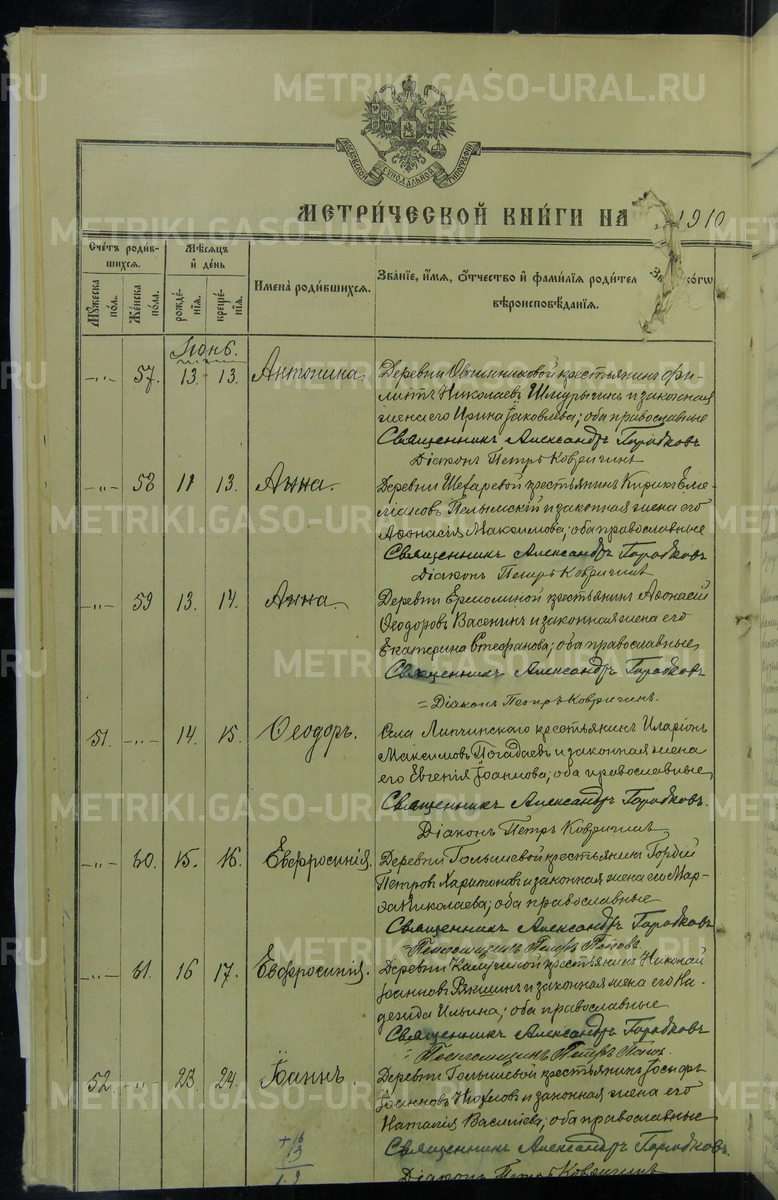 МОСКОВСКОЙ СѴНОДАЛЬНОЙ ТИПОГРАФІИ
МЕТРИ́ЧЕСКОЙ КНИ́ГИ НА 1910
Сче́тъ роди́вшихся.
Мѣ́сяцъ и де́нь
Имена̀ роди́вшихся.
Зва́нїе, и́мя, о́тчество и фами́лїя роди́тел
ко́гѡ
вѣроисповѣ́данїя.
Мꙋ́жеска по́ла.
Же́нска по́ла.
рожде́нїя.
креще́нїя.
Іюнь.
-"- 57. 13. 13. Антонина.
Деревни Овчинниковой крестьянинъ Фи-
липпъ Николаевъ и законная
жена его Ирина Іаковлева; оба православные
Священникъ Александръ Городковъ
Діаконъ Петръ Ковригинъ
-"- 58 11 13. Анна.
Деревни крестьянинъ Кирикъ Еме-
ліановъ Пелымскій и законная жена его
Аѳонасія Максимова; оба православные
Священникъ Александръ Городковъ
Діаконъ Петръ Ковригинъ
-"- 59 13. 14. Анна.
Деревни Ермолиной крестьянинъ Аѳонасій
Ѳеодоровъ Васенинъ и законная жена его
Екатерина Стефанова; оба православные
Священникъ Александръ Городковъ
Діаконъ Петръ Ковригинъ.
51. -"- 14. 15. Ѳеодоръ.
Села Липчинскаго крестьянинъ Иларіонъ
Максимовъ Погадаевъ и законная жена
его Евгенія Іоаннова; оба православные
Священникъ Александръ Городковъ.
Діаконъ Петръ Ковригинъ
-"- 60. 15. 16. Евфросинія.
Деревни Голышевой крестьянинъ Гордій
Петровъ Харитоновъ и законная жена его Мар-
ѳа Николаева; оба православные
Священникъ Александръ Городковъ
Псаломщикъ Петръ Поповъ.
-"- 61. 16 17. Евфросинія.
Деревни крестьянинъ Николай
Іоанновъ Рякшинъ и законная жена его На-
дежда Ильина; оба православные
Священникъ Александръ Городковъ
Псаломщикъ Петръ
52. -"- 23 24. Іоаннъ.
Деревни Голышевой крестьянинъ Іосифъ
Іоанновъ и законная жена его
Наталія Василіева; оба православные
Священникъ Александръ Городковъ.
Діаконъ Петръ Ковригинъ
METRIKI.GASO-URAL.RU